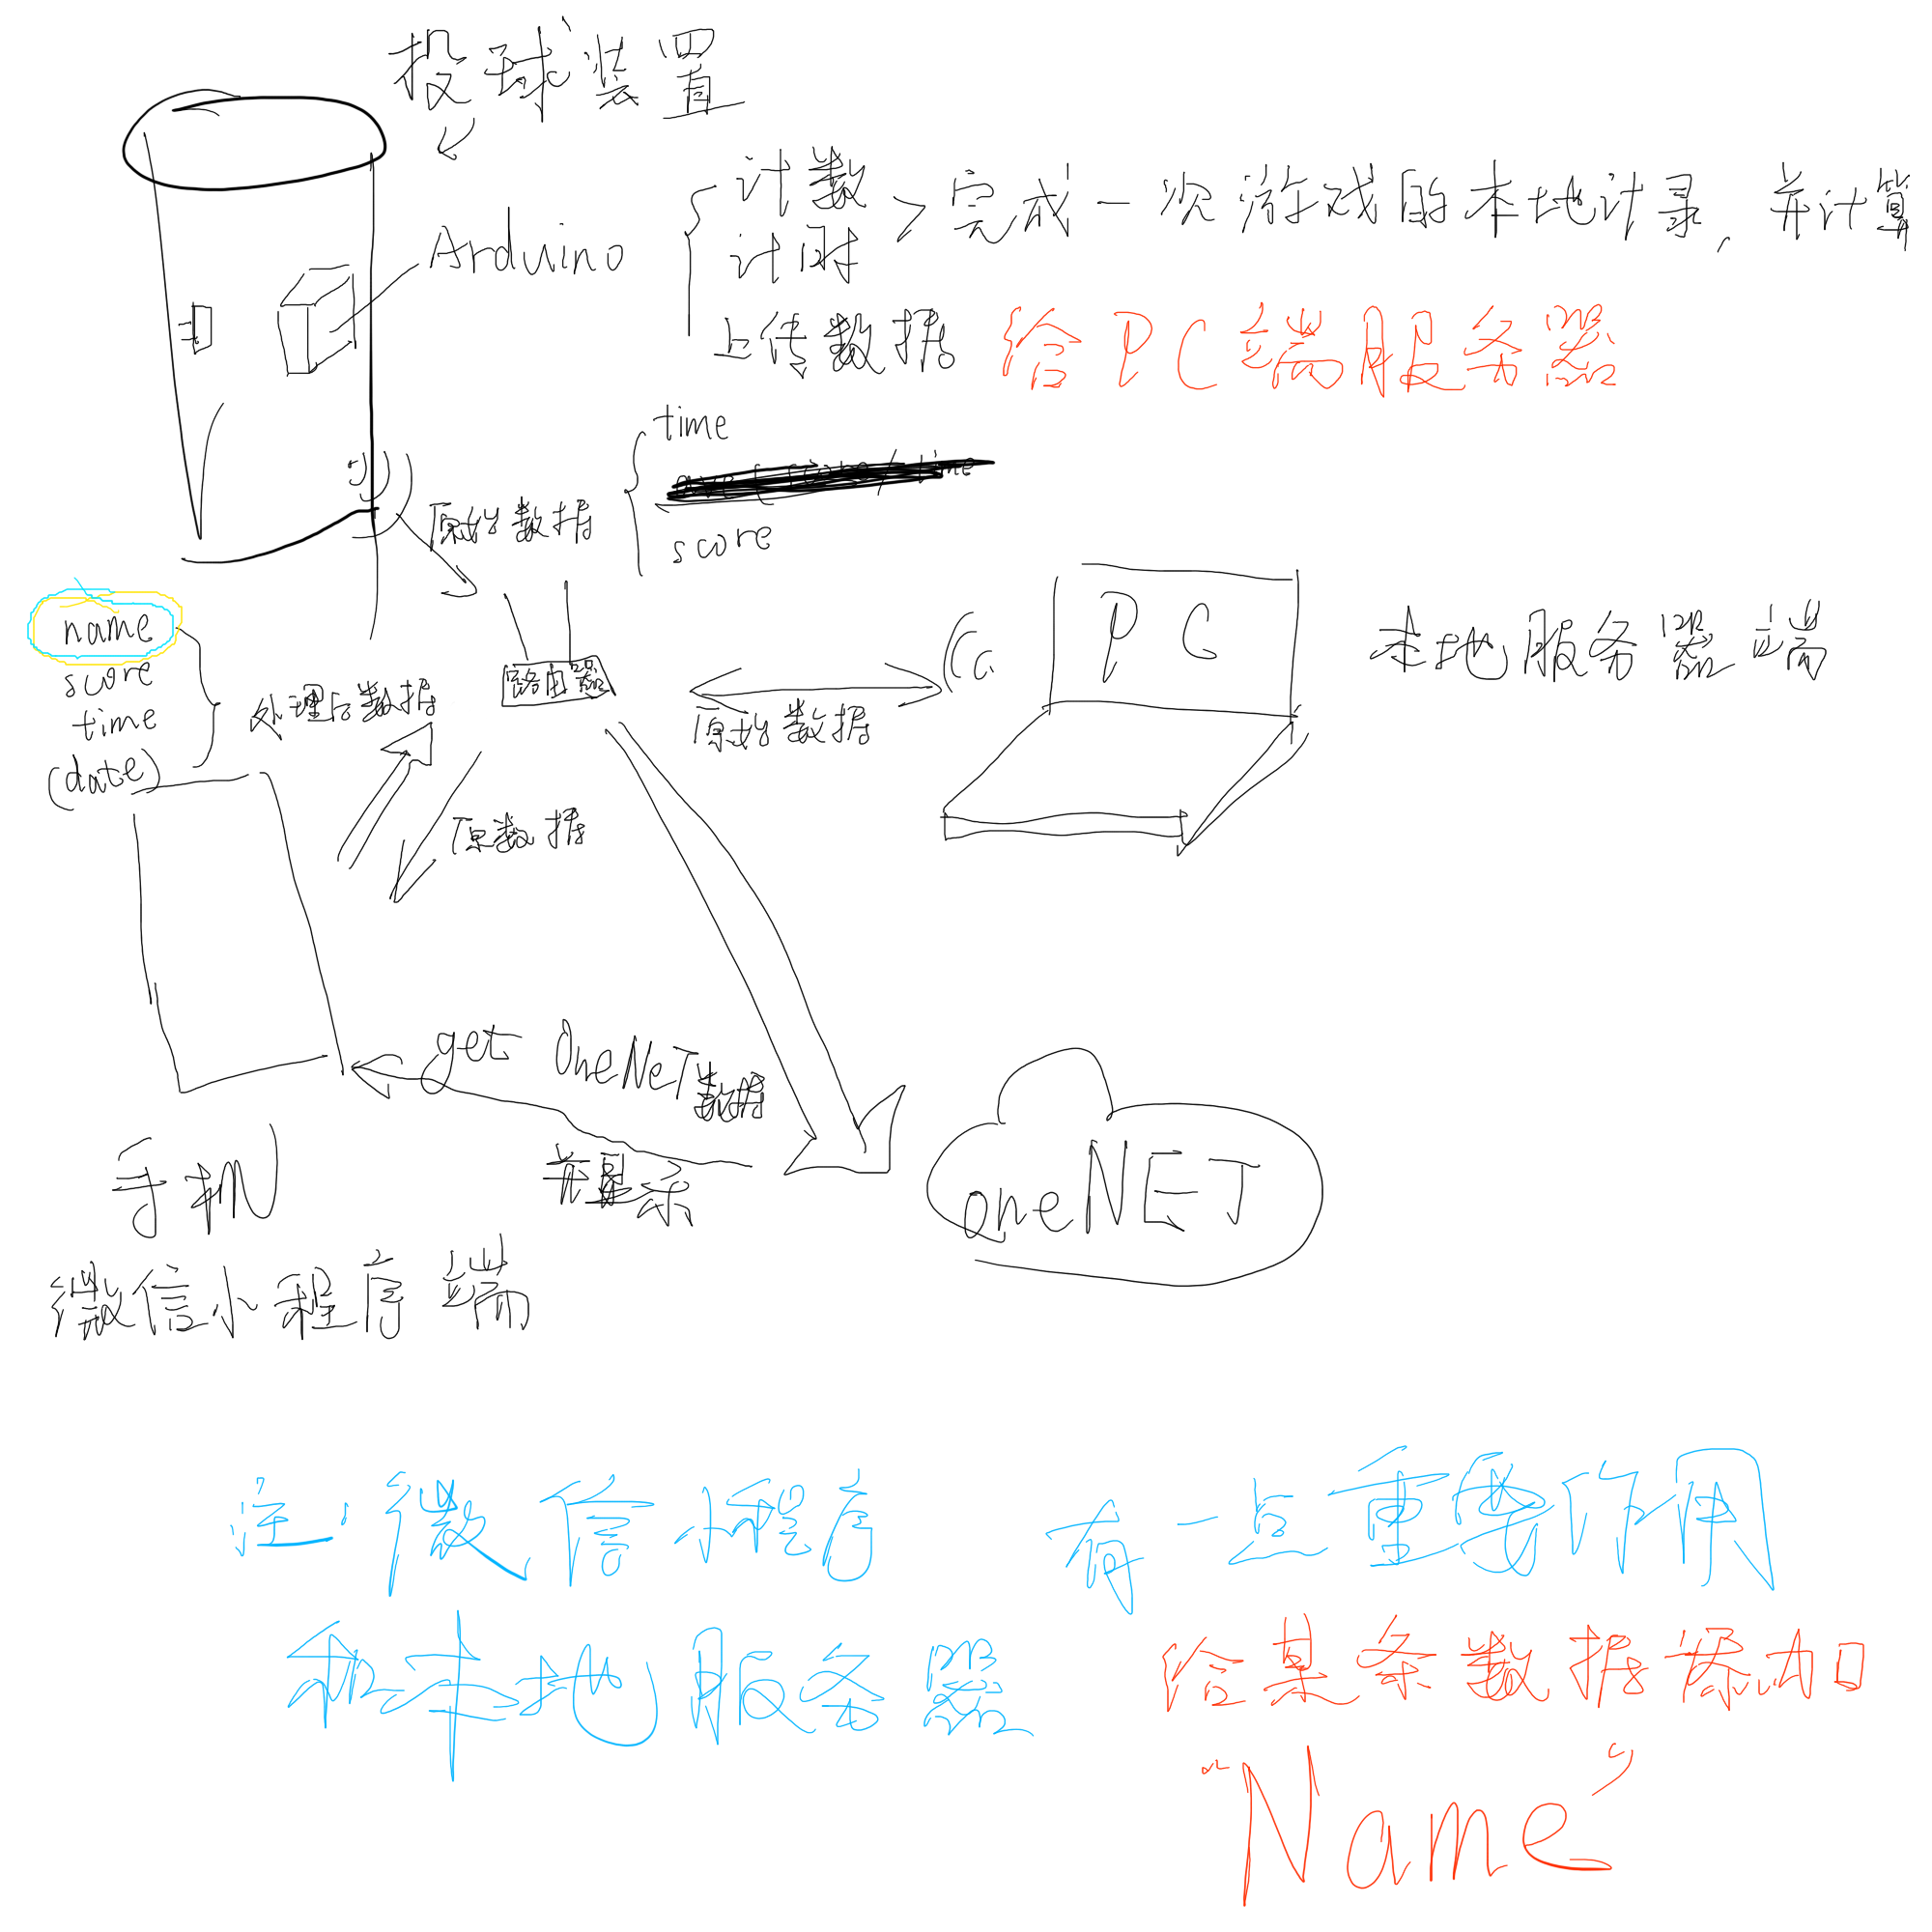 投球装置
Arduino
计数
计时
完成一次游戏的本地计录,并计算
上传数据 给PC端服务器
time
score
原始数据
name
score
time
(date)
处理后数据
路由器
原始数据
PC
本地服务器端
原数据
get OneNeT数据
并显示
oneNET
手机
微信小程序端
注:微信小程序 有一点重要作用
和本地服务器 给某条数据添加
“Name”